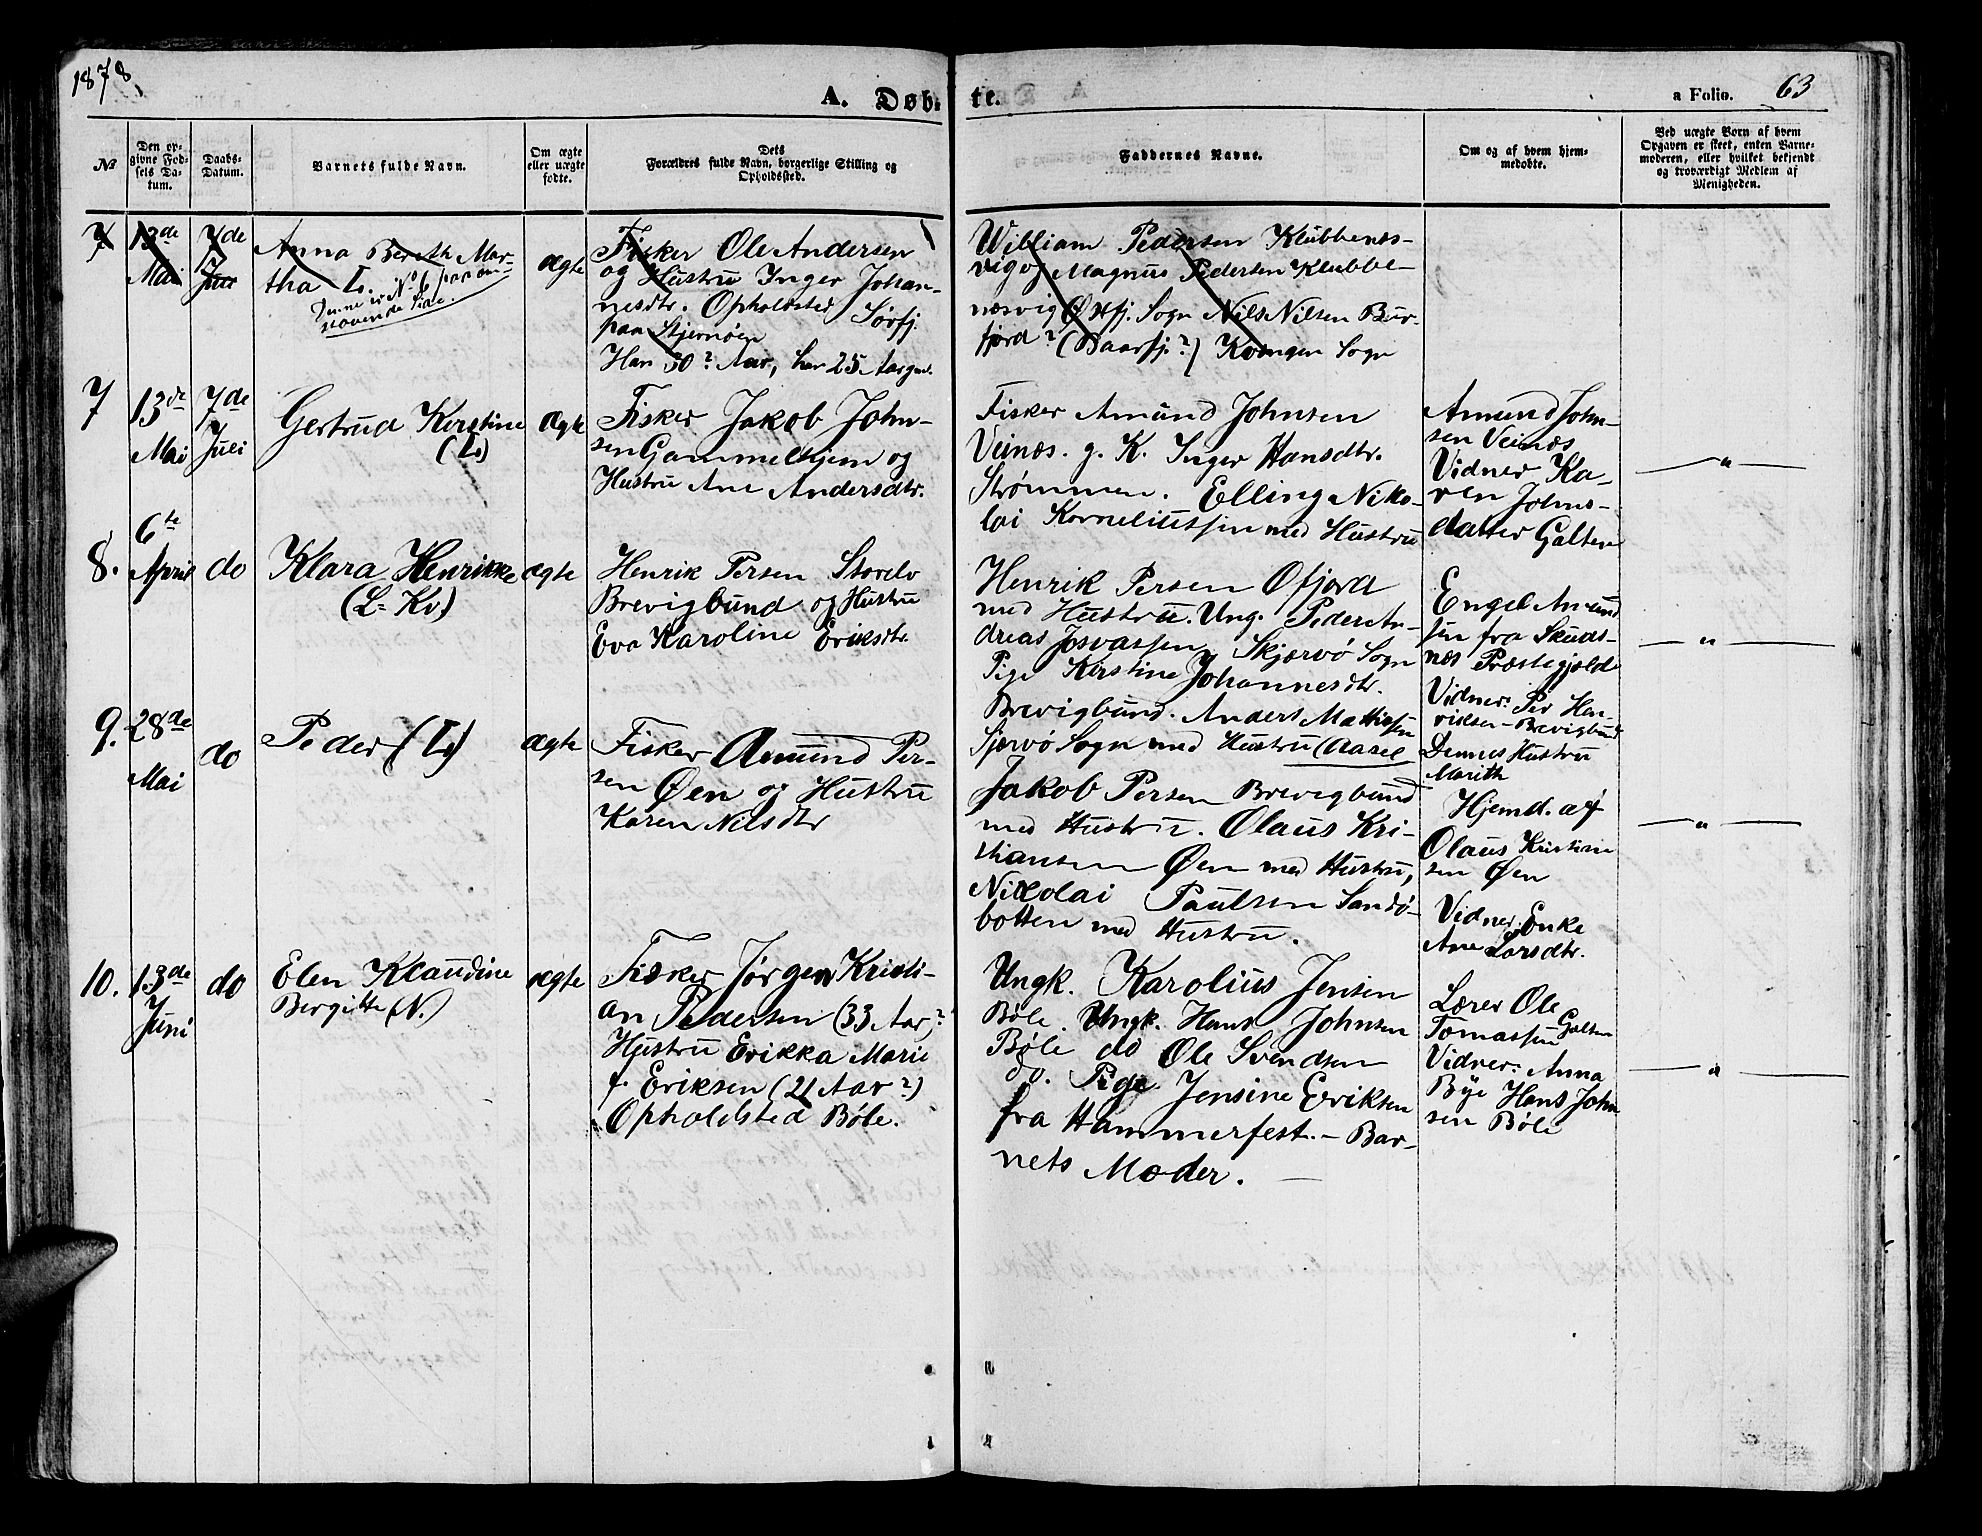 1878
A. Døb-
te.
a Folio. 63
No
Den op-
givne Fød-
sels Da-
tum.
Daabs-
Datum.
Barnets fulde Navn.
Om ægte
eller uægte
fødte.
Dets
Forældres fulde Navn, borgerlige Stilling og
Opholdssted.
Faddernes Navne.
Om og af hvem hjem-
medøbte.
Ved uægte Børn af hvem
Opgaven er skeet, enten Barne-
moderen, eller hvilket bekjendt
og troværdigt Medlem af
Menigheden.
7
13de
Mai
7de
Juli
Anna Bereth Mar-
tha L.
Denne er No 6 paa om-
staaende Side.
ægte
Fisker Ole Andersen
og Hustru Inger Johan-
nesdtr. Opholdsted Sørfj.
paa Stjernøen
Han 30? Aar, hun 25 Aar gml.
William Pedersen Klubbenes-
vig og Magnus Pedersen Klubbe-
nesvig Øxfj. Sogn Nils Nilsen Bur-
fjord? (Baarfj.?) Kvængen Sogn
7
13de
Mai
7de
Juli
Gertrud Kirstine
(L)
Ægte
Fisker Jakob John-
sen Gammelhjem og
Hustru Ane Andersdtr.
Fisker Amund Johnsen
Veinæs. g. K. Inger Hansdtr.
Strømmen. Elling Niko-
lai Korneliussen med Hustru
Amund John-
sen Veinæs
Vidner Ka-
ren Johns-
datter Galten
— " —
8.
6te
April
do
Klara Henrikke
(L= Kv)
ægte
Henrik Persen Storelv
Brevigbund og Hustru
Eva Karoline Eriksdtr.
Henrik Persen Ofjord
med Hustru. Ung. Peder An-
dreas Josvassen Skjærvø Sogn
Pige Kirstine Johannesdtr.
Brevigbund. Anders Mathisen
Sjærvø Sogn med Hustru (Aasel
Engel Amund
sen fra Skuds-
næs Præstegjeld
Vidner: Per Hen-
riksen Brevigbund
Dennes Hustru
Marith
— " —
9.
28de
Mai
do
Peder (L)
ægte
Fisker Amund Per-
sen Øen og Hustru
Karen Nilsdtr
Jakob Persen Brevigbund
med Hustru. Olaus Kri-
stiansen Øen med Hustru,
Nikolai Paulsen Sandø-
botten med Hustru.
Hjemd. af
Olaus Kristian
sen Øen
Vidner. Enke
Ane Larsdtr.
— " —
10.
13de
Juni
do
Elen Klaudine
Bergitte (N.)
ægte
Fisker Jørgen Kristi-
an Pedersen (33 Aar?
Hustru Erikka Marie
f. Eriksen (21 Aar?)
Opholdsted Bøle.
Ungk. Karolius Jensen
Bøle. Ungk. Hans Johnsen
Bøle do Ole Svendsen
do. Pige Jensine Eriksen
fra Hammerfest. — Bar-
nets Moder. —
Lærer Ole
Tomassen Galten
Vidner. Anna
Bye Hans John
sen Bøle
— " —